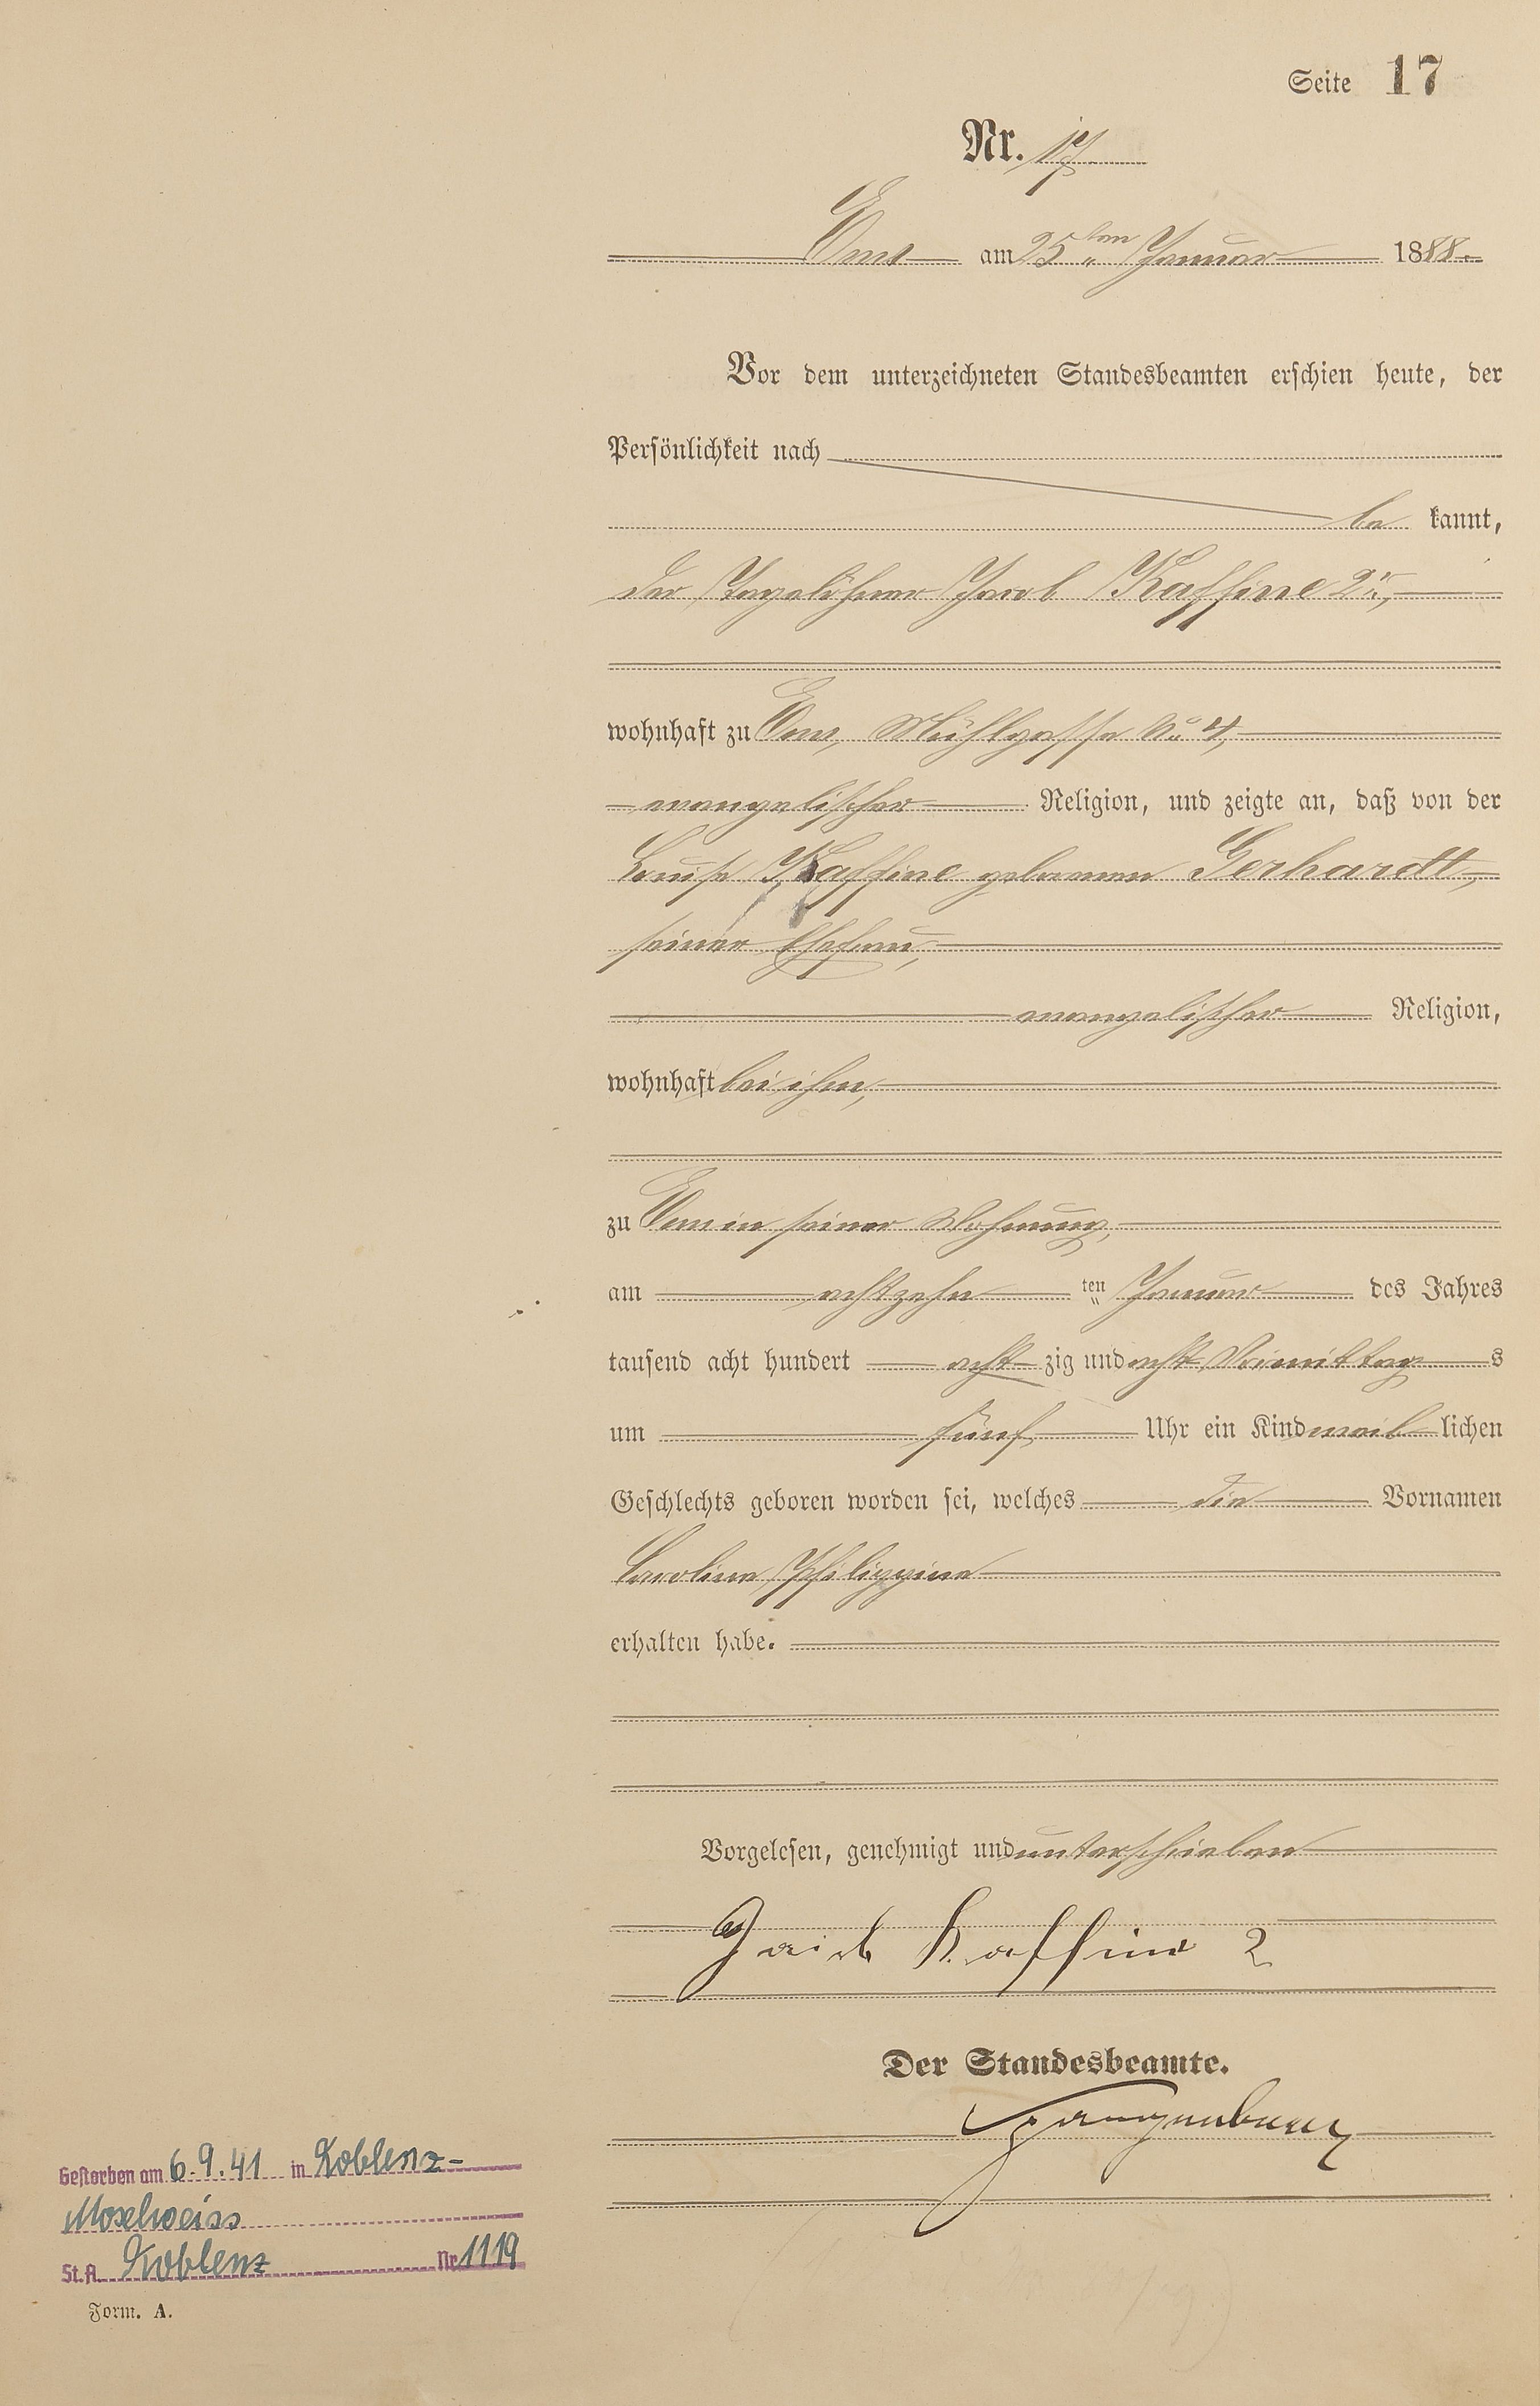 Seite 17
Nr. 17
Ems am 25ten Januar 1888.
Vor dem unterzeichneten Standesbeamten erschien heute, der
Persönlichkeit nach
be kannt,
der Tagelöhner Jacob Kaffine 2r,
wohnhaft zu Ems, Mühlgasse No 4,
evangelischer Religion, und zeigte an, daß von der
Louise Kaffine geborenen Gerhardt,
seiner Ehefrau,
evangelischer Religion,
wohnhaft bei ihm,
zu Ems in seiner Wohnung,
am achtzehn ten Januar des Jahres
tausend acht hundert acht zig und acht Vormittag s
um fünf Uhr ein Kind weib lichen
Geschlechts geboren worden sei, welches die Vornamen
Caroline Philippine
erhalten habe.
Vorgelesen, genehmigt und unterschrieben
Jacob Kaffine 2
Der Standesbeamte.
Gestorben am 6.9.41 in Koblenz-
Moselweiss
St.A. Koblenz Nr. 1119
Form. A.